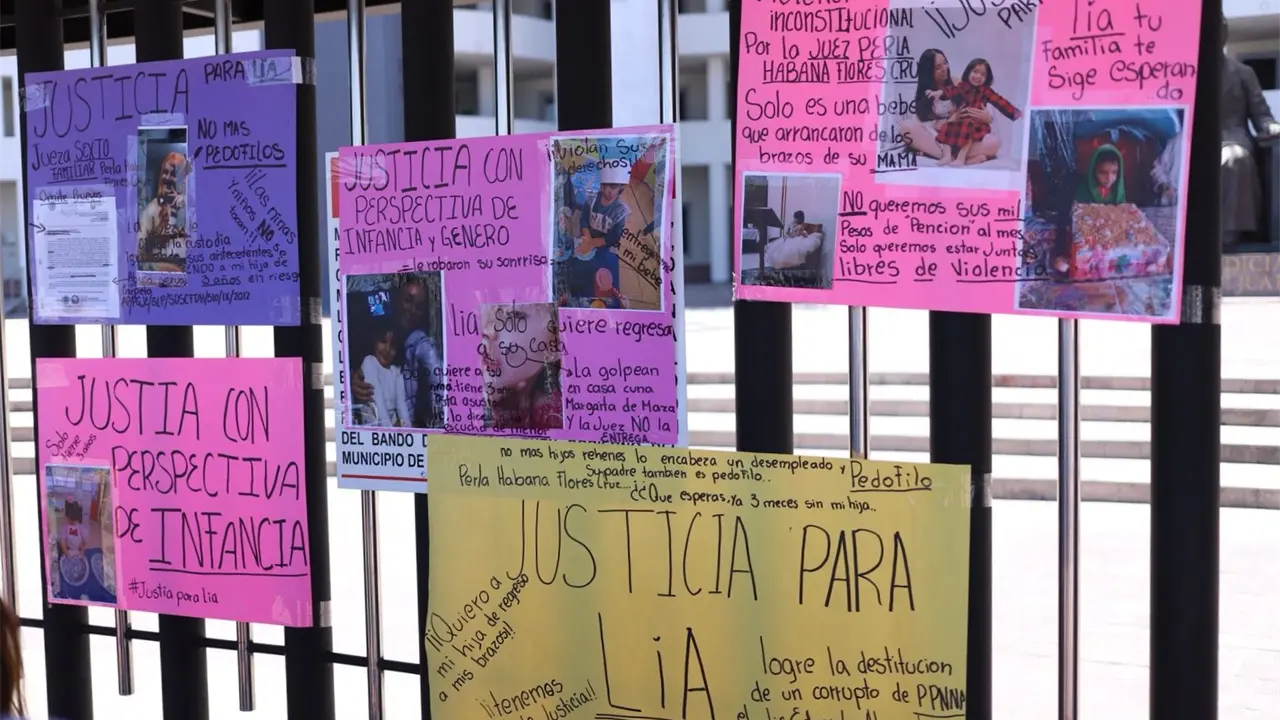 JUSTICIA PARA LIA
Jueza SEXTO
FAMILIAR Perla
Omite Pruevas
NO MAS
PEDOFILOS
custodia
sus antecedentes
a mi hija de
3 años en riesgo
JUSTIA CON
PERSPECTIVA
DE INFANCIA
Solo
tiene
3 años
#Justia para lia
JUSTICIA CON
PERSPECTIVA DE
INFANCIA y GENERO
le robaron su sonrrisa
¡¡violan Sus
derechos!!
entreguen
a mi bebe
Lia Solo quiere regresa
a su casa
La golpean
en casa cuna
Margarita de Maza
y la Juez NO la
ENTREGA
DEL BANDO
MUNICIPIO DE
INCONSTITUCIONAL
Por la JUEZ PERLA
HABANA FLORES CRU
Solo es una bebe
que arrancaron de los
brazos de su MAMA
¡¡JUS
PARA
lia tu
Familia te
Sige esperan
do
NO queremos sus mil
Pesos de "Pencion" al mes
Solo queremos estar Juntas
libres de Violencia
no mas hijos rehenes lo encabeza un desempleado y Pedofilo
Su padre tambien es pedofilo..
Perla Habana Flores Cruz
¿¿Que esperas, Ya 3 meces sin mi hija..
JUSTICIA PARA
LIA
¡¡Quiero a
mi hija de regreso
a mis brazos!!
¡¡tenemos
Justicia!!
logre la destitucion
de un corrupto de PPNNA